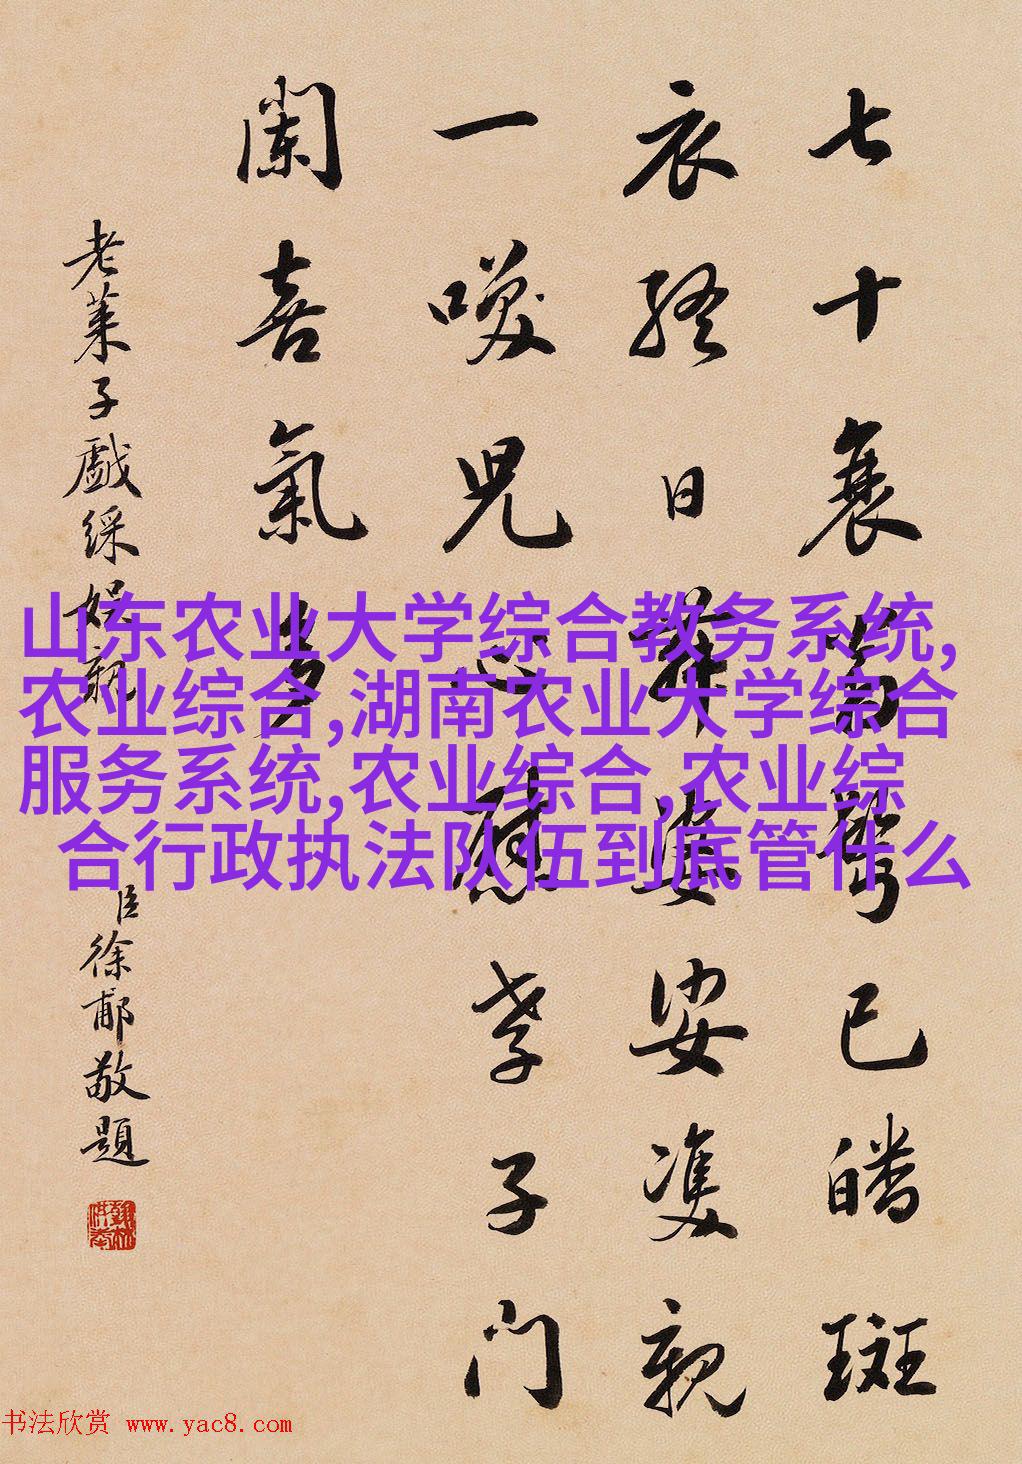 七十衰鬢已皤斑
衣終日舞婆娑雙親
一兒心慰孝子門
闌喜氣多
老萊子戲綵娛親
臣徐郙敬題
山东农业大学综合教务系统,
农业综合,湖南农业大学综合
服务系统,农业综合,农业综
合行政执法队伍到底管什么
书法欣赏 www.yac8.com